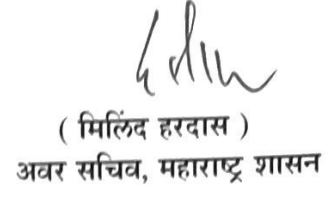 ( मिलिंद हरदास )
अवर सचिव, महाराष्ट्र शासन